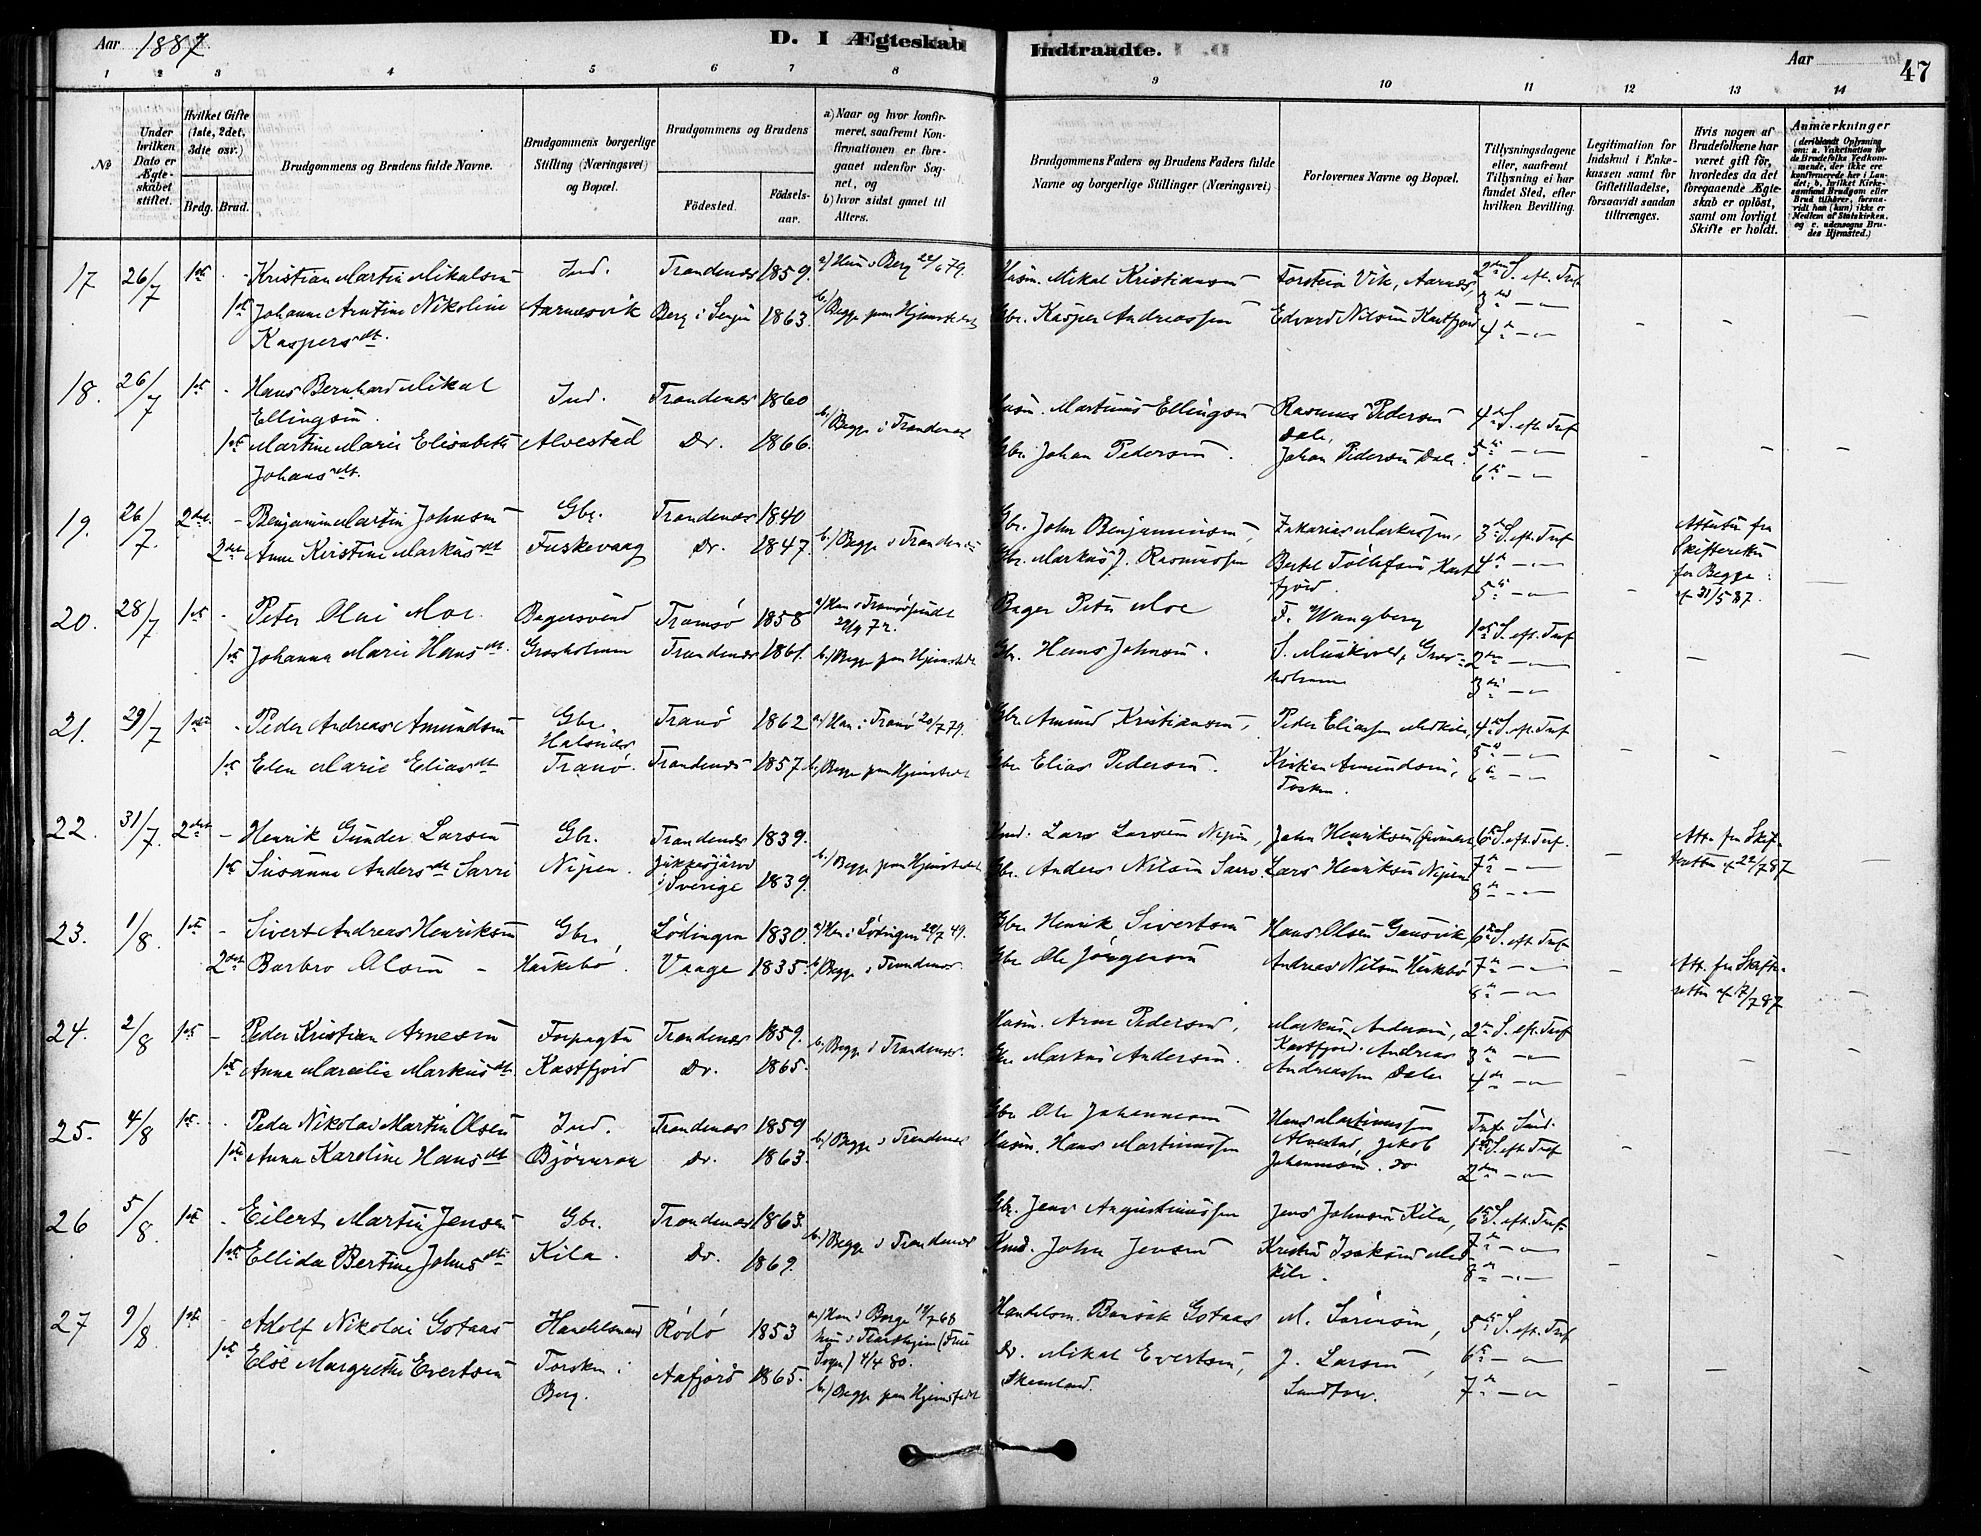 Aar 1887 D. I Ægteskab Indtraadte. Aar 47
1 2 3 4 5 6 7 8 9 10 11 12 13 14
No
Under hvilken Dato er Ægteskabet stiftet.
Hvilket Gifte (1ste, 2det, 3die osv.)
Brdg. Brud.
Brudgommens og Brudens fulde Navne.
Brudgommens borgerlige Stilling (Næringsvei) og Bopæl.
Brudgommens og Brudens
Fødested.
Fødselsaar.
a) Naar og hvor konfirmeret, saafremt Konfirmationen er foregaaet udenfor Sognet, og
b) hvor sidst gaaet til Alters.
Brudgommens Faders og Brudens Faders fulde Navne og borgerlige Stillinger (Næringsvei)
Forlovernes Navne og Bopæl.
Tillysningsdagene eller, saafremt Tillysning ei har fundet Sted, efter hvilken Bevilling.
Legitimation for Indskud i Enkekassen samt for Giftetilladelse, forsaavidt saadan tiltrænges.
Hvis nogen af Brudefolkene har været gift før, hvorledes da det foregaaende Ægteskab er opløst, samt om lovligt Skifte er holdt.
Anmærkninger
(deriblandt Oplysning om: a. Vakcination for de Brudefolks Vedkommende, der ikke ere konfirmerede her i Landet; b. hvilket Kirkesamfund Brudgom eller Brud tilhører, forsaavidt han (hun) ikke er Medlem af Statskirken, og c. udensogns Brudes Hjemsted.)
17 26/7 1ste - Kristian Martin Mikalsen Ind. Trondenæs 1859. Husm. Mikal Kristiansen Torstein Vik, Aarnes, 2den S. eft. Tref.
1ste Johanne Arntine Nikoline Aarnesvik Berg i Senjen 1863. b) Begge paa Hjemstedet Gbr. Kasper Andreassen Edvard Nilsen Kastfjord 3die — "
Kaspersdt. 4de — "
18. 26/7 1ste - Hans Bernhard Mikal Ind. Trondenæs 1860
Ellingsen. b) Begge i Trondenæs Husm. Martinus Ellingsen Rasmus Pedersen 4de S. eft. Tref
1ste Martine Marie Elisabeth Alvestad Do. 1866. Gbr. Johan Pedersen. Dale, 5te — "
Johansdt. Johan Pedersen Dale. 6te — "
19. 26/7. 2det - Benjamin Martin Johnsen Gbr. Trondenæs 1840 Gbr. John Benjaminsen, Zakarias Markussen, 3die S. eft. Tref Attester fra
2det Anne Kristine Markusdt Fuskevaag Do. 1847. b) Begge i Trondenæs Gbr. Markus J. Rasmussen Bertel Tollefsen Kastfjord. 4de — " Skifteretten
5te — " for Begge af 31/5 87.
20. 28/7 1ste - Peter Olai Moe. Bagersvend Tromsø 1858 Bager Peter Moe F. Wangberg 1ste S. eft. Tref
1ste Johanna Marie Hansdt. Grasholmen Trondenæs 1861. b) Begge paa Hjemstedet Gbr. Hans Johnsen. 2den — "
3die — "
21. 29/7 1ste - Peder Andreas Amundsen Gbr. Tranø 1862 a) Han i Tranø 20/7 79. Gbr. Amund Kristiansen, Peder Eliassen Medkila, 4de S. eft. Tref
1ste Elen Marie Eliasdt Tranø. Trondenæs 1857 b) Begge paa Hjemstedet Gbr. Elias Pedersen. Kristian Amundsen, 5te — "
6te — "
22. 31/7. 2det - Henrik Gunder Larsen Gbr. Trondenæs 1839. Lars Larsen Nipen, 6te S. eft. Tref. Att. fra Skifteretten af 22/7 87
1ste Susanna Andersdt Sarri Nipen. Jukkesjärvi i Sverige 1839. b) Begge paa Hjemstedet Gbr. Anders Nilsen Sarri. Lars Henriksen Nipen 7de — "
8de — "
23. 1/8. 1ste - Sivert Andreas Henriksen Gbr. Lødingen 1830. a) Han i Lødingen 29/7 49. Gbr. Henrik Sivertsen Hans Olsen Gausvik, 6te S. eft. Tref.
2det Barbro Olsen - Harkebø. Vaage 1835. b) Begge i Trondenæs Gbr. Ole Jörgensen Andreas Nilsen Harkebø 7de — " Att. fra Skifteretten
8de — "
24. 2/8 1ste - Peder Kristian Arnesen Forpagter Trondenæs 1859. b) Begge i Trondenæs. Husm. Arne Pedersen, Markus Andersen, 2den S. eft. Tref
1ste Anna Marselie Markusdt. Kastfjord Do. 1865. Gbr. Markus Andersen. Kastfjord. Andreas Andreassen Dale 3die — "
4de — "
25. 4/8 1ste - Peder Nikolai Martin Olsen Ind. Trondenæs 1859 b) Begge i Trondenæs Gbr. Ole Johannesen Hans Martinussen
1ste Anna Karoline Hansdt Björnraa Do. 1863. Husm. Hans Martinussen Alvestad, Jakob Johannesen. do 1ste S. eft. Tref
2den — "
26 5/8. 1ste - Eilert Martin Jensen Gbr. Trondenæs 1863. b) Begge i Trondenæs Gbr. Jens Augustinussen Jens Johnsen Kila, 6te S. eft. Tref.
1ste Ellida Bertine Johnsdt. Kila. Do. 1869. John Jensen Kristen Isaksen Medkila. 7de — "
8de — "
27 9/8 1ste - Adolf Nikolai Gotaas Handelsmand Rödö 1853 a) Han i Borge 12/7 68 Handelsm. Gotaas M. Sörensen, 5te S. eft. Tref
1ste Else Margrethe Evertsen Torsken i Berg. Aafjord 1865. hun i Trondhjem (Frue Sogn) 4/4 80. Do. Mikal Evertsen, J. Larsen, 6te — "
b) Begge paa Hjemstedet Sandtorv. 7de — "